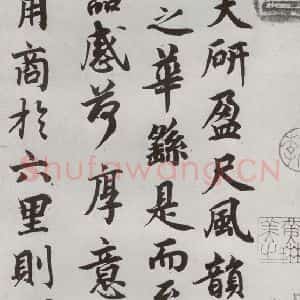 大研盈尺風韻
之華繇是而
品感荷厚意
用商於六里則
Shufawang.CN